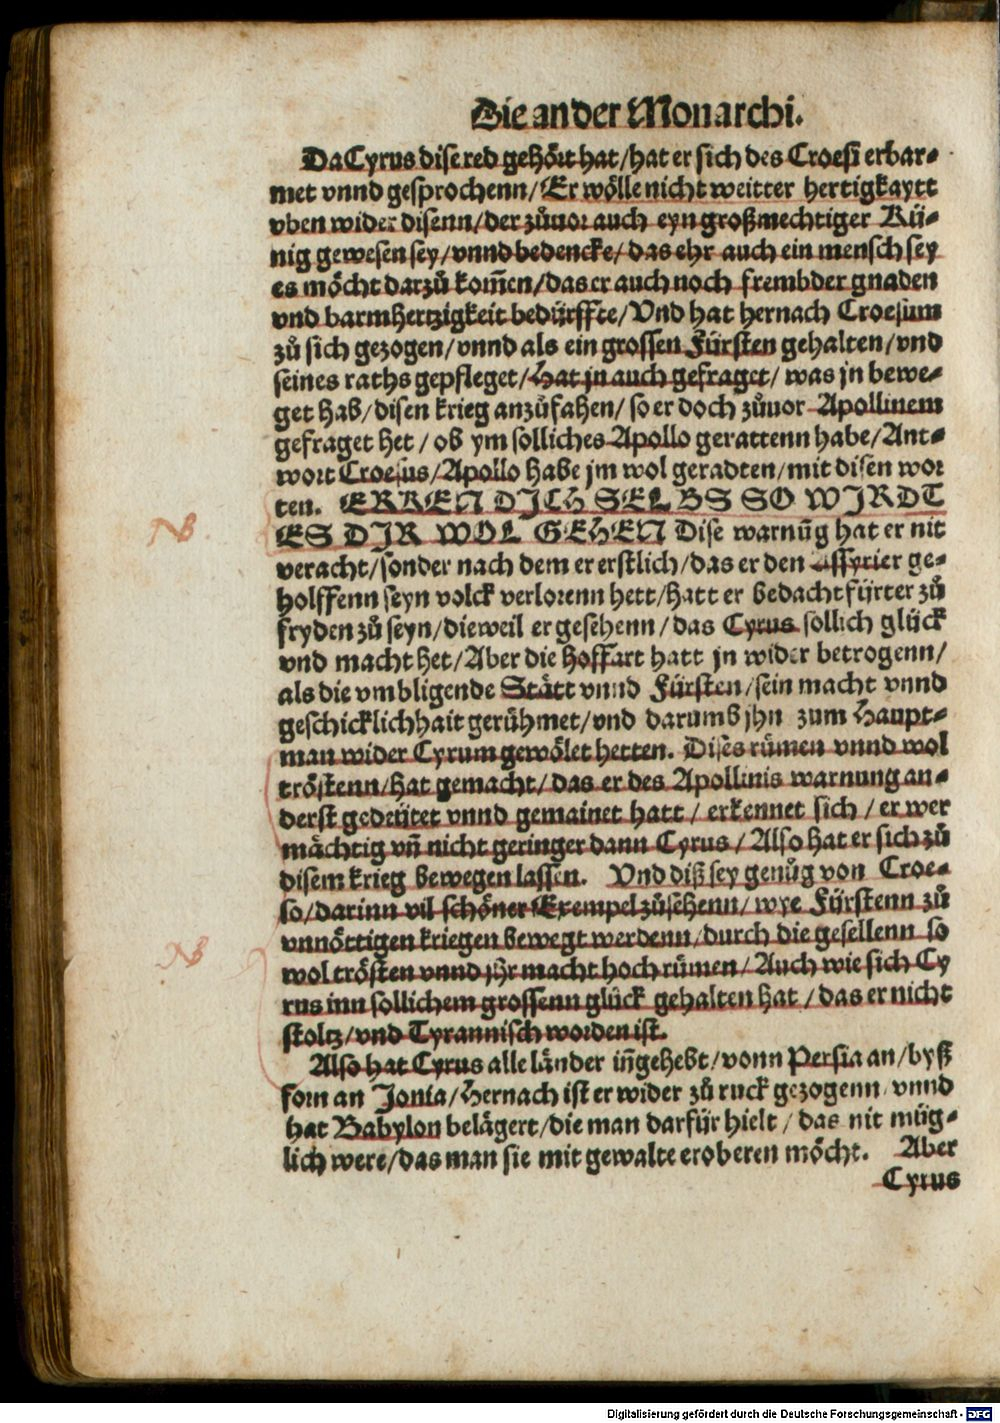 Die ander Monarchi.
Da Cyrus dise red gehört hat/hat er sich des Croesi erbar⸗
met vnnd gesprochenn/Er wölle nicht weitter hertigkaytt
vben wider disenn/der zůuor auch eyn großmechtiger Kü⸗
nig gewesen sey/vnnd bedencke/das ehr auch ein mensch sey
es möcht darzů kom̄en/das er auch noch frembder gnaden
vnd barmhertzigkeit bedürffte/Vnd hat hernach Croesum
zů sich gezogen/vnnd als ein grossen Fürsten gehalten/vnd
seines raths gepfleget/Hat jn auch gefraget/ was jn bewe⸗
get hab/disen krieg anzůfahen/ so er doch zůuor Apollinem
gefraget het/ ob ym solliches Apollo gerattenn habe/Ant⸗
wort Croesus/Apollo habe jm wol geradten/mit disen wor
ten. ERKEN DICH SELBS SO WIRDT
ES DIR WOL GEHEN Dise warnūg hat er nit
veracht/sonder nach dem er erstlich/das er den Assyrier ge⸗
holffenn seyn volck verlorenn hett/hatt er bedacht fürter zů
fryden zů seyn/dieweil er gesehenn/das Cyrus sollich glück
vnd macht het/Aber die hoffart hatt jn wider betrogenn/
als die vmbligende Stätt vnnd Fürsten/sein macht vnnd
geschicklichhait gerühmet/vnd darumb jhn zum Haupt⸗
man wider Cyrum gewölet hetten. Dises rümen vnnd wol
tröstenn/hat gemacht/das er des Apollinis warnung an⸗
derst gedeütet vnnd gemainet hatt/ erkennet sich/ er wer
mächtig vn̄ nicht geringer dann Cyrus/Also hat er sich zů
disem krieg bewegen lassen. Vnd diß sey genůg von Croe⸗
so/darinn vil schöner Exempel zůsehenn/wye Fürstenn zů
vnnöttigen kriegen bewegt werdenn/durch die gesellenn so
wol trösten vnnd jhr macht hoch rümen/Auch wie sich Cy
rus inn sollichem grossenn glück gehalten hat/das er nicht
stoltz/vnd Tyrannisch worden ist.
Also hat Cyrus alle länder in̄gehebt/vonn Persia an/byß
forn an Jonia/Hernach ist er wider zů ruck gezogenn vnnd
hat Babylon belägert/die man darfür hielt/das nit müg⸗
lich were/das man sie mit gewalte eroberen möcht. Aber
Cyrus
NB.
NB
Digitalisierung gefördert durch die Deutsche Forschungsgemeinschaft - DFG